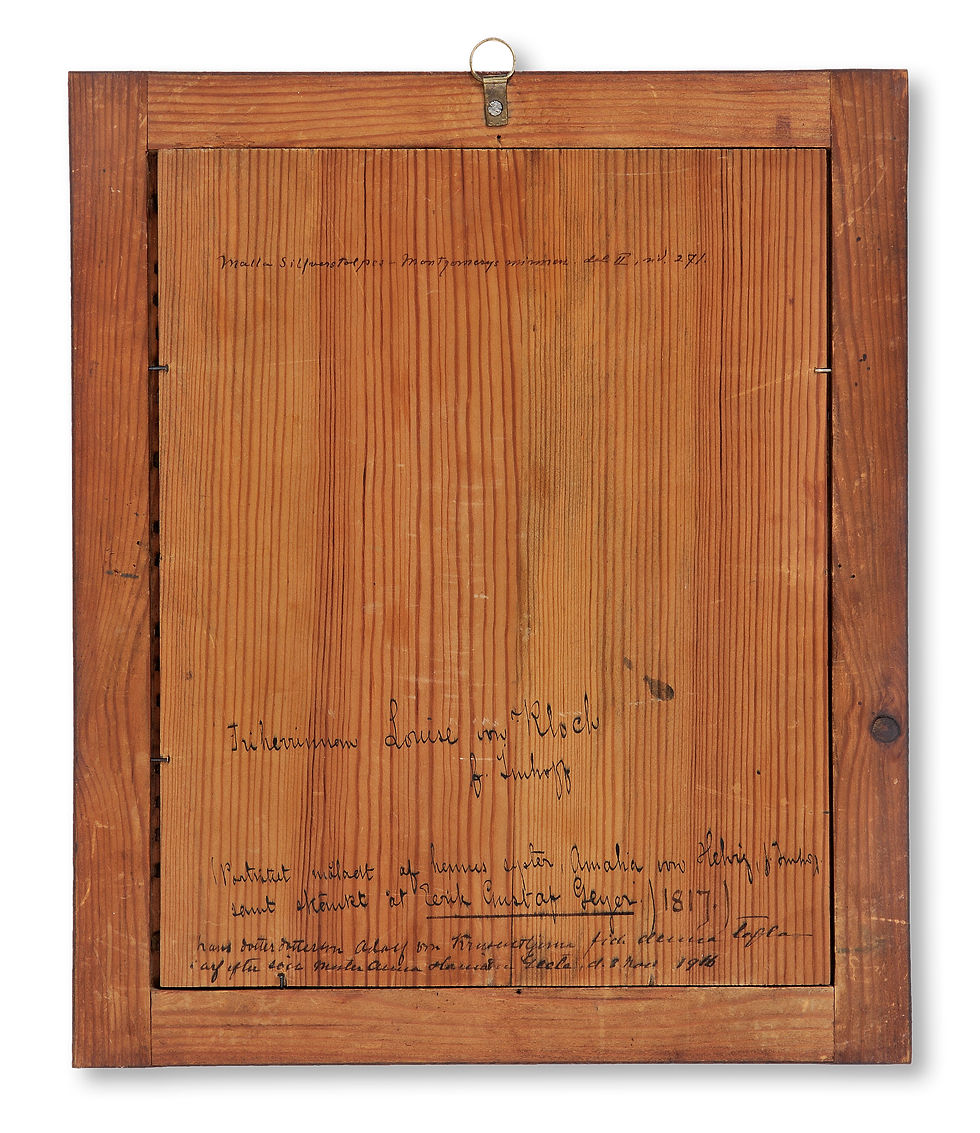 Malla Silfverstolpes-Montgomerys minnen. del II, sid. 271.
Friherrinnan Louise von Kloch
f. Imhoff
(Porträttet måladt af hennes syster, Amalia von Helvig, f. Imhoff.
samt skänkt åt Erik Gustaf Geijer.) (1817.)
hans dotter dotterson Adolf von Krusenstjerna fick denna tafla
i arf efter sin moster Anna Hamilton Geete, d. 8 1916